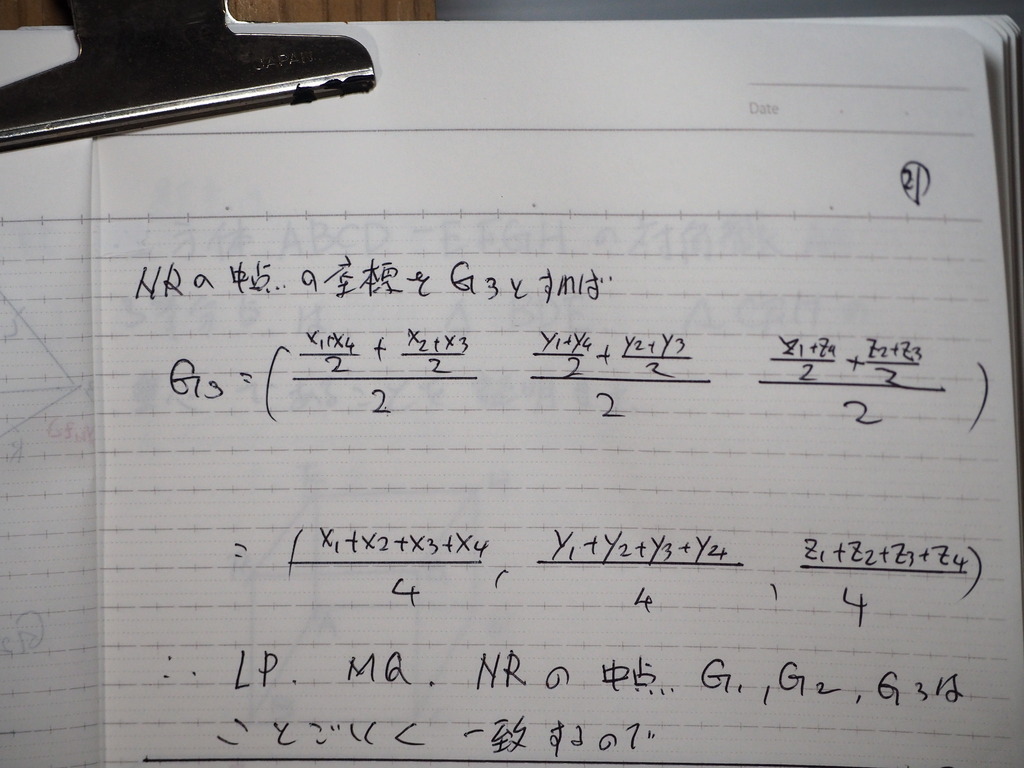 JAPAN
Date
21
NRの中点の座標をG3とすれば
G3 = ( ((x1+x4)/2 + (x2+x3)/2)/2 ((y1+y4)/2 + (y2+y3)/2)/2 ((z1+z4)/2 + (z2+z3)/2)/2 )
= ( (x1+x2+x3+x4)/4 , (y1+y2+y3+y4)/4 , (z1+z2+z3+z4)/4 )
∴ LP. MQ. NRの中点 G1, G2, G3は
ことごとく一致するので